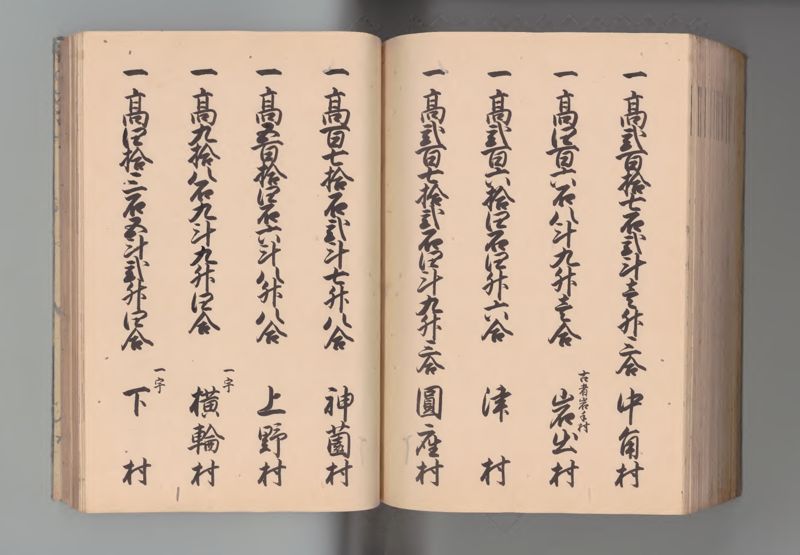 一 高弐百拾七石弐斗壱升三合 中角村
一 高四百六石八斗九升壱合 古者岩手村 岩出村
一 高弐百六拾四石四升六合 津村
一 高弐百七拾弐石四斗九升三合 圓座村
一 高百七拾石弐斗七升八合 神薗村
一 高五百拾四石六斗八升八合 上野村
一 高九拾八石九斗九升四合 一字 横輪村
一 高四拾三石五斗弐升四合 一字 下村